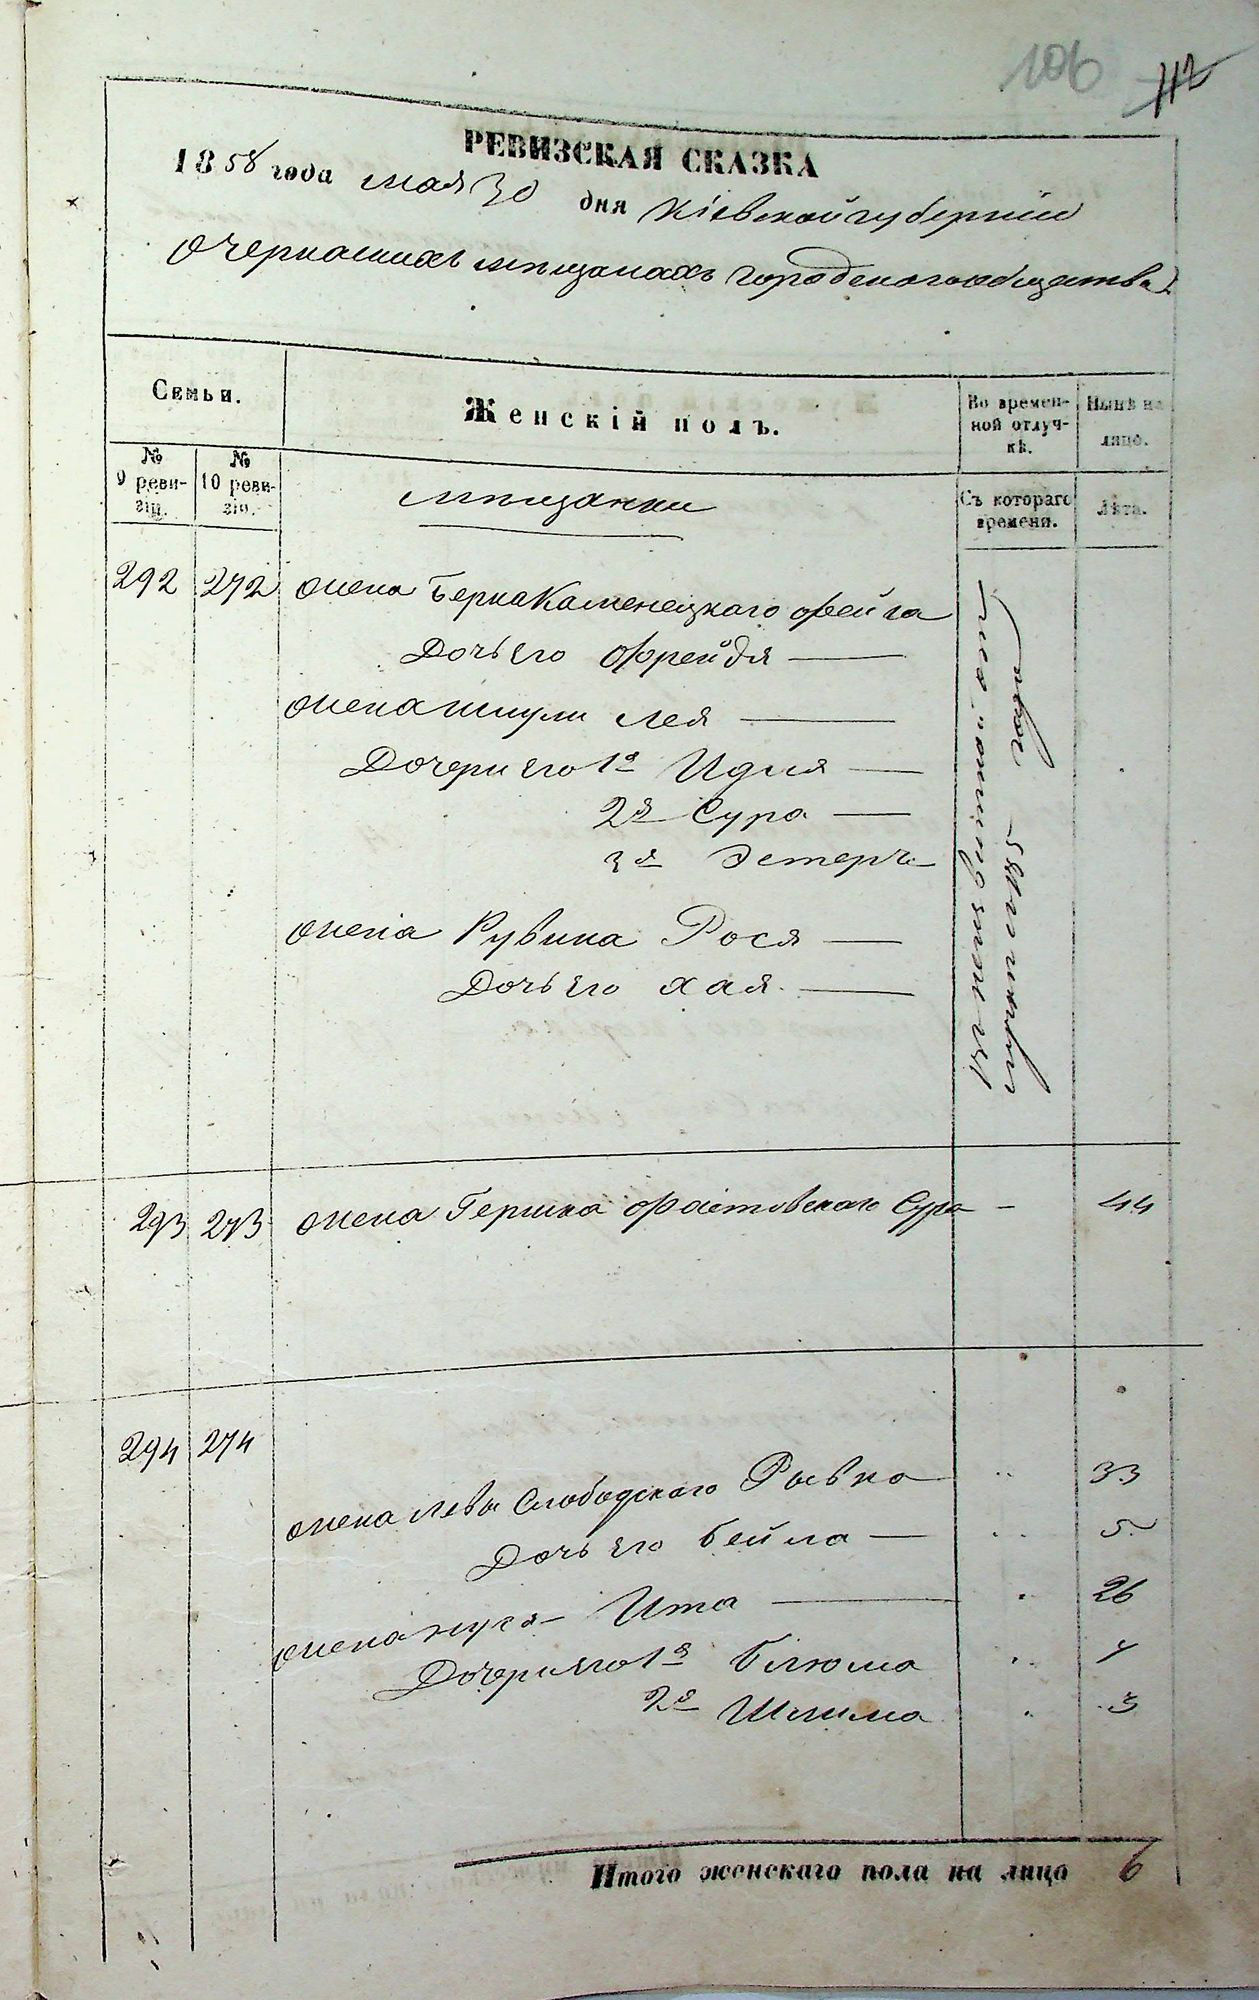 106 112
РЕВИЗСКАЯ СКАЗКА
1858 года мая 30 дня Кіевской губерніи
О черкаскихъ мѣщанахъ городскаго общества
Семьи.
Женскій полъ.
Во времен-
ной отлуч-
кѣ.
Нынѣ на
лицо.
№
9 реви-
зіи.
№
10 реви-
зіи.
Съ котораго
времени.
Лѣта.
мѣщанки
292 272 жена Берка Каменецкаго Фейга
Дочь его Фрейдя
жена Шмули Лея
Дочери его 1я Идия
2я Сура
3я Эстеръ
жена Рувина Рося
Дочь его Хая
293 273 жена Гершка Фастовскаго Сура - 44
294 274
жена Левы Слободскаго Рывка 33
Дочь его Бейла 5
жена Нуся Ита 26
Дочери его 1я Блюма 7
2я Шлима 3
Итого женскаго пола на лицо 6